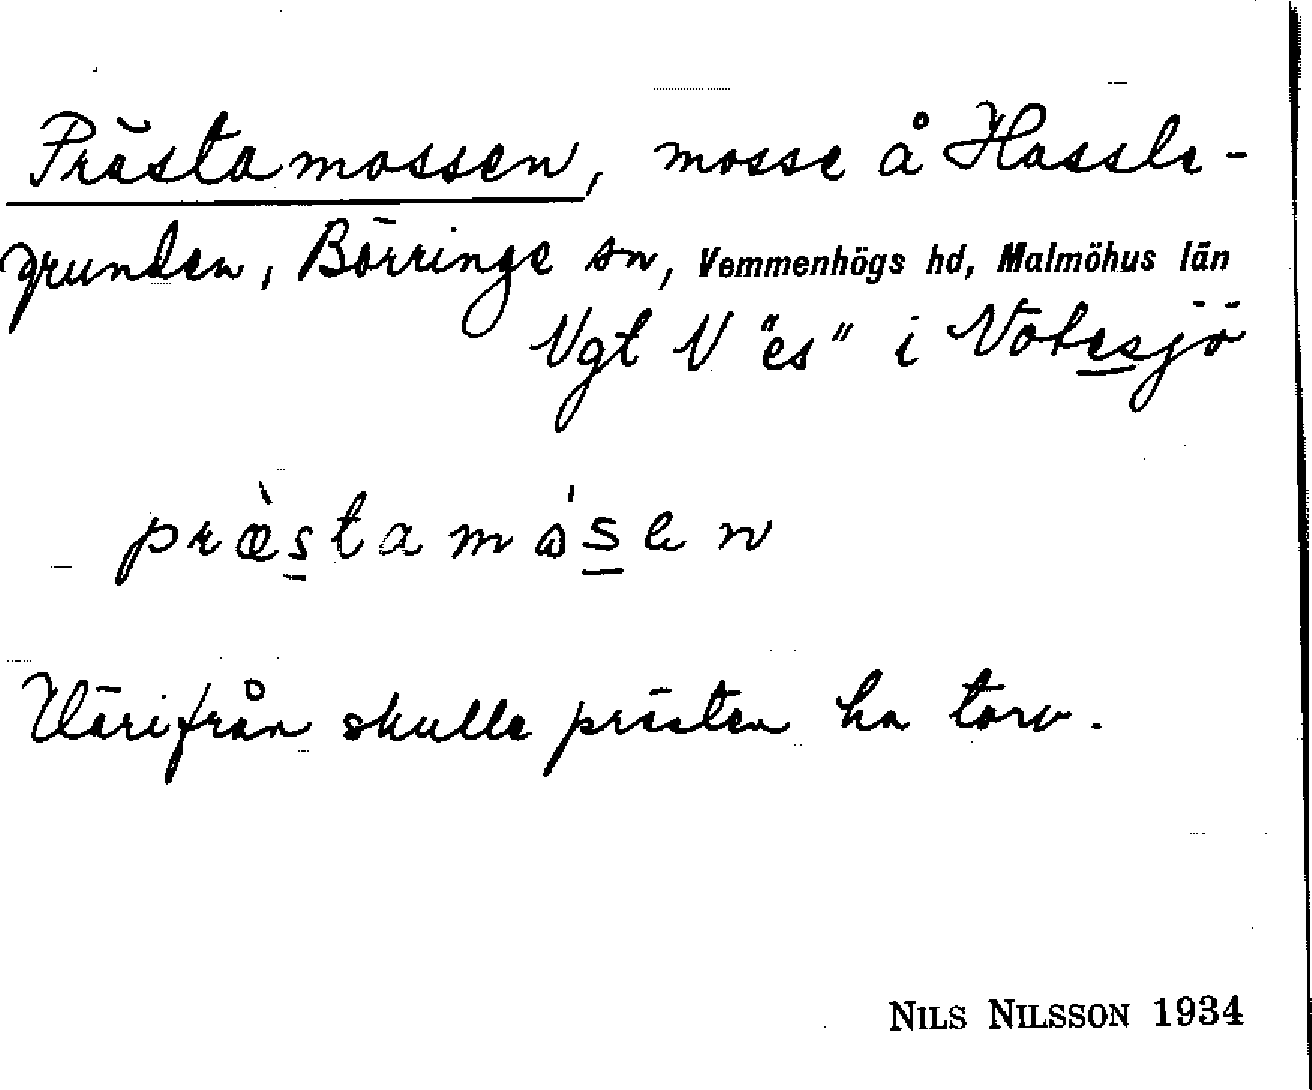 Prästamossen, mosse å Hassle-
grunden, Börringe sn, Vemmenhögs hd, Malmöhus län
Vgt V "es" i Vötesjö
præ̀stamósen
Härifrån skulle prästen ha torv.
NILS NILSSON 1934